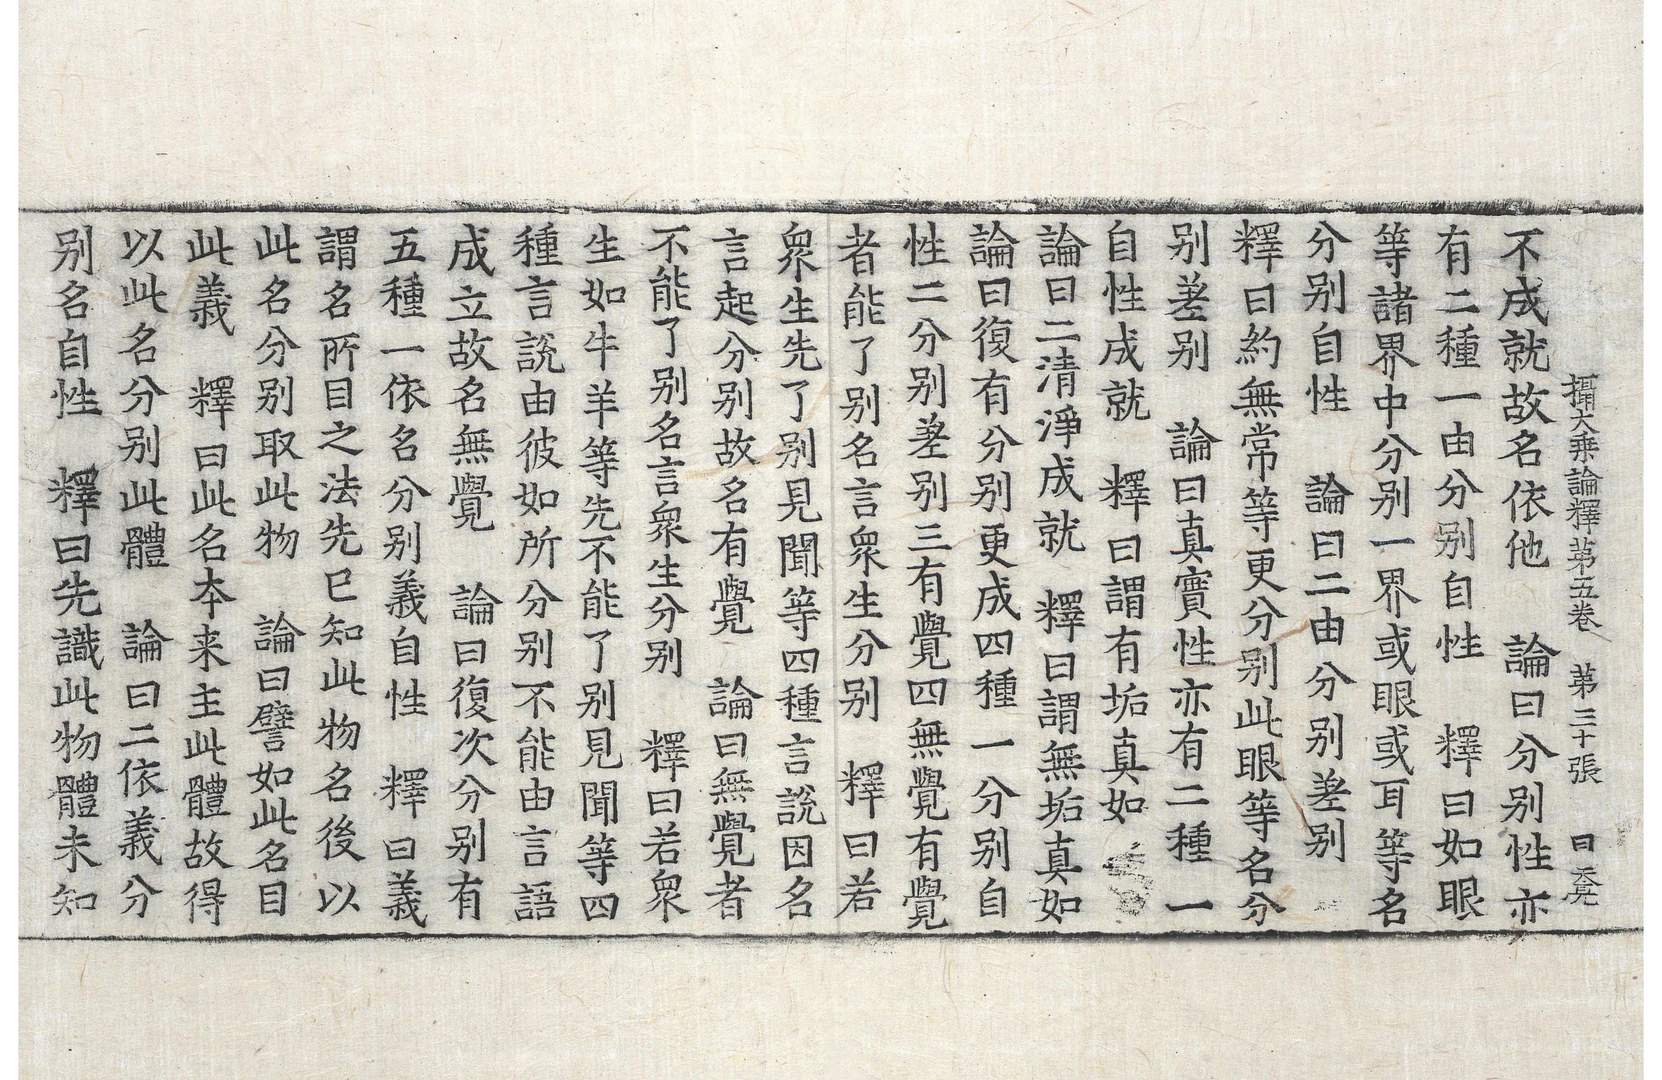 攝大乗論釋第五卷 第三十張 曰
不成就故名依他 論曰分别性亦
有二種一由分别自性 釋曰如眼
等諸界中分别一界或眼或耳等名
分别自性 論曰二由分别差别
釋曰約無常等更分别此眼等名分
别差别 論曰真實性亦有二種一
自性成就 釋曰謂有垢真如
論曰二清淨成就 釋曰謂無垢真如
論曰復有分别更成四種一分别自
性二分别差别三有覺四無覺有覺
者能了别名言衆生分别 釋曰若
衆生先了别見聞等四種言說因名
言起分别故名有覺 論曰無覺者
不能了别名言衆生分别 釋曰若衆
生如牛羊等先不能了别見聞等四
種言說由彼如所分别不能由言語
成立故名無覺 論曰復次分别有
五種一依名分别義自性 釋曰義
謂名所目之法先已知此物名後以
此名分别取此物 論曰譬如此名目
此義 釋曰此名夲来主此體故得
以此名分别此體 論曰二依義分
别名自性 釋曰先識此物體未知